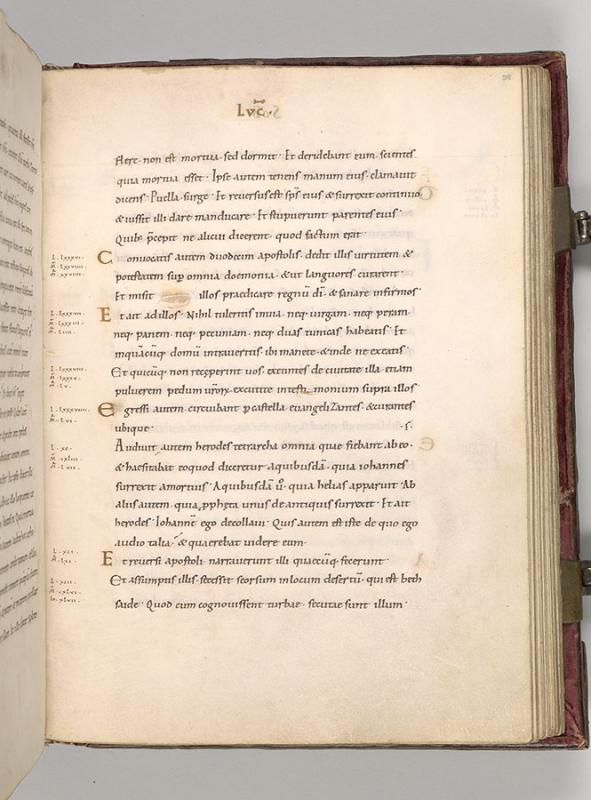 LVC̄
flere· non est mortua· sed dormit· Et deridebant eum· scientes
quia mortua esset· Ipse autem tenens manum eius· clamauit
dicens· Puella surge· Et reuersus est sp̄s eius & surrexit continuo·
& iussit illi dare manducare· Et stupuerunt parentes eius·
Quib; p̄cepit ne alicui dicerent· quod factum erat·
Conuocatis autem duodecim apostolis· dedit illis uirtutem &
potestatem sup omnia daemonia· & ut languores curarent·
Et misit illos praedicare regnū dī· & sanare infirmos·
Et ait ad illos· Nihil tuleritis in uia· neq; uirgam· neq; peram·
neq; panem· neq; pecuniam· neq; duas tunicas habeatis· Et
in quācūq; domū intraueritis· ibi manete· & inde ne exeatis·
Et quicūq; non receperint uos· exeuntes de ciuitate illa· etiam
puluerem pedum ur̄orū· excutite in testimonium supra illos·
Egressi autem circuibant p castella euangelizantes· & curantes
ubique·
Audiuit autem herodes tetrarcha omnia quae fiebant ab eo·
& haesitabat eo quod diceretur a quibusdā· quia iohannes
surrexit a mortuis· A quibusdā u̅· quia helias apparuit· Ab
aliis autem· quia ppheta unus de antiquis surrexit· Et ait
herodes· Iohannē ego decollaui· Quis autem est iste de quo ego
audio talia· & quaerebat uidere eum·
Et reuersi apostoli· narrauerunt illi quaecūq; fecerunt·
Et assumptis illis· secessit seorsum in locum desertū· qui est beth
saide· Quod cum cognouissent turbae· secutae sunt illum·